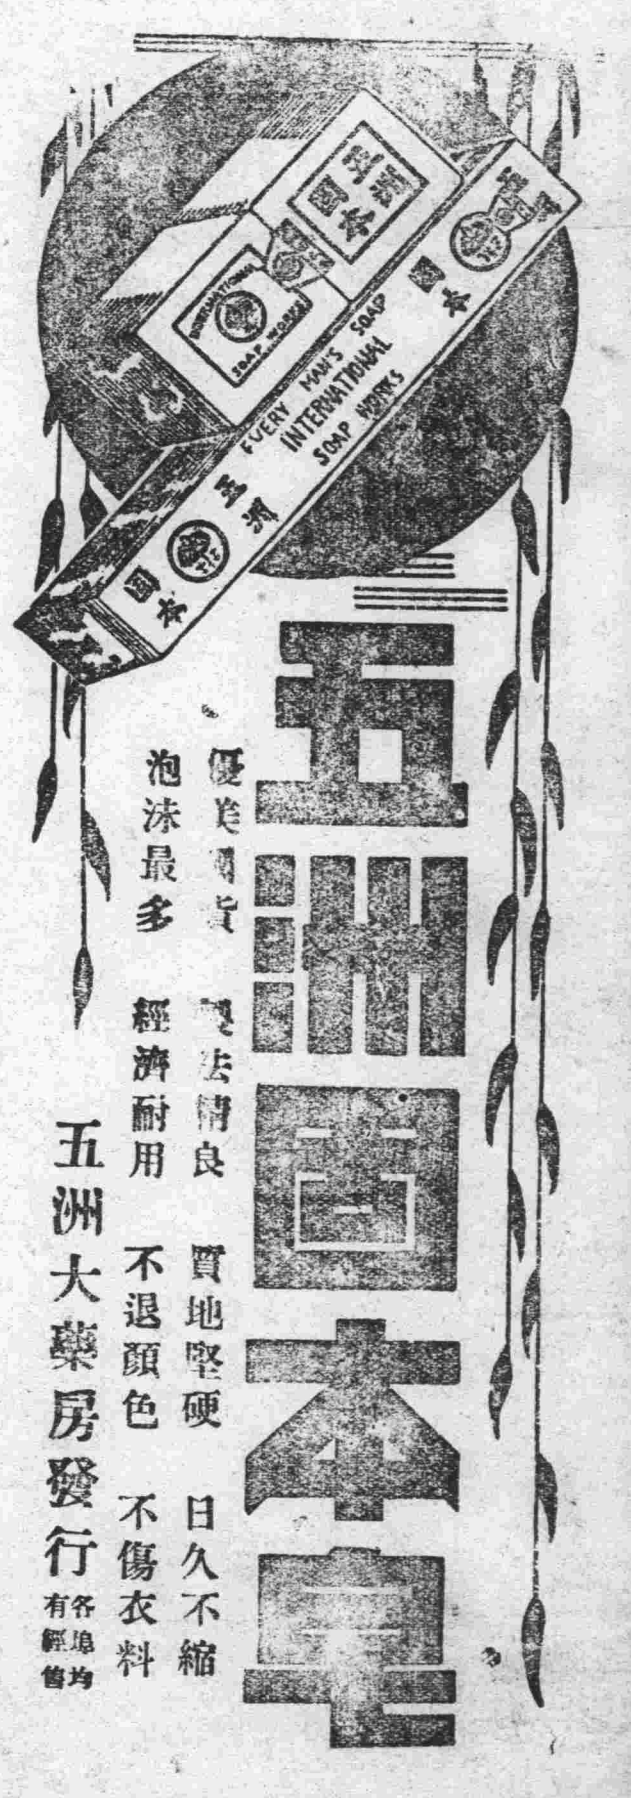 五洲
固本
INTERNATIONAL
SOAP WORKS
五洲
固本
EVERY MAN'S SOAP
INTERNATIONAL
SOAP WORKS
五洲
固本
五洲固本皂
優美國貨 製法精良 質地堅硬 日久不縮
泡沫最多 經濟耐用 不退顏色 不傷衣料
五洲大藥房發行
各埠均
有經售